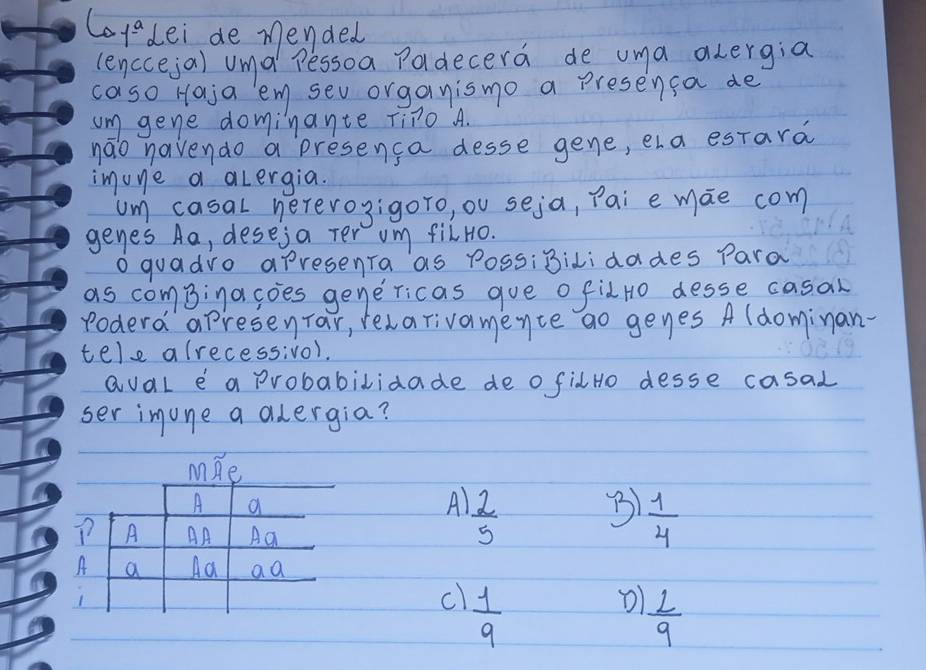 ↳1ª Lei de Mendel
(encceja) uma Pessoa Padecerá de uma alergia
caso Haja em seu organismo a Presença de
um gene dominante Tipo A.
não havendo a presença desse gene, ela estará
imune a alergia.
um casal heterozigoto, ou seja, Pai e mãe com
genes Aa, deseja ter um filho.
o quadro apresenta as Possibilidades Para
as combinações genéticas que o filho desse casal
Poderá apresentar, relativamente ao genes A (dominan-
te) e a (recessivo).
Qual é a Probabilidade de o filho desse casal
ser imune a alergia?
MÃe
A a
P A AA Aa
A a Aa aa
i
A) 2/5 B) 1/4
C) 1/9 D) 2/9